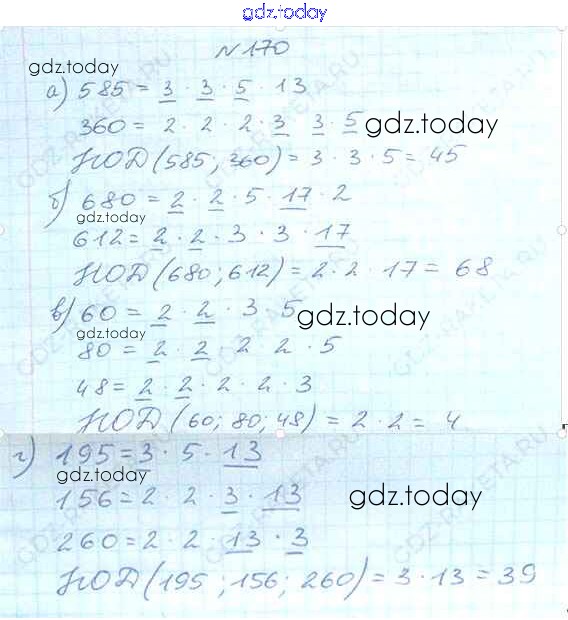 gdz.today
№ 170
gdz.today
а) 585 = 3 · 3 · 5 · 13
360 = 2 · 2 · 2 · 3 3 · 5 gdz.today
НОД (585; 360) = 3 · 3 · 5 = 45
б) 680 = 2 · 2 · 5 · 17 · 2
gdz.today
612 = 2 · 2 · 3 · 3 · 17
НОД (680; 612) = 2 · 2 · 17 = 68
в) 60 = 2 · 2 · 3 5 gdz.today
gdz.today
80 = 2 · 2 2 2 · 5
48 = 2 · 2 · 2 · 2 · 3
НОД (60; 80; 48) = 2 · 2 = 4
г) 195 = 3 · 5 · 13
gdz.today
156 = 2 · 2 · 3 · 13 gdz.today
260 = 2 · 2 · 13 · 3
НОД (195; 156; 260) = 3 · 13 = 39